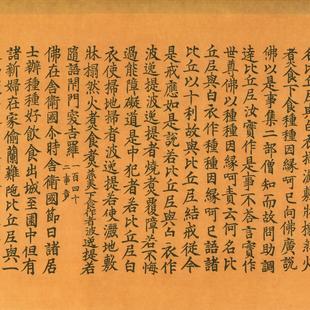 名比丘尼與白衣掃灑敷牀榻然火
煮食下食種種因緣呵已向佛廣說
佛以是事集二部僧知而故問助調
達比丘尼汝實作是事不荅言實作
世尊佛以種種因緣呵責云何名比
丘尼與白衣作種種因緣呵已語諸
比丘以十利故與比丘尼結戒從今
是戒應如是說若比丘尼與白衣作
波逸提波逸提者燒煮覆障若不悔
過能障礙道是中犯者若比丘尼白
衣使掃地掃者波逸提若使灑地敷
牀榻然火煮食煮羹一一作皆波逸提若
隨語閉門突吉羅 一百四十二事竟
佛在舍衛國尒時舍衛國節日諸居
士辦種種好飲食出城至園中但有
諸新婦在家偷蘭難陁比丘尼與一